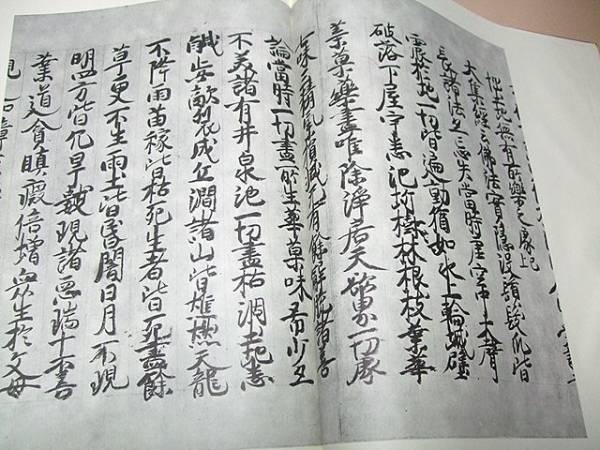 大地無有所樂之處已上
大集經云佛法實隱没鬚髮爪皆
長諸法亦忘失當時虚空中大聲
震於地一切皆遍動猶如水上輪城壁
破落下屋宇悉圮坼樹林根枝葉華
葉菓藥盡唯除淨居天欲界一切處
七味三精氣損減无有餘解脱諸善
論當時一切盡所生華菓味希少亦
不美諸有井泉池一切盡枯涸土地悉
鹹鹵敵裂成丘澗諸山皆燋燃天龍
不降雨苗稼皆枯死生者皆死盡餘
草更不生雨土皆昏闇日月不現
明四方皆亢旱數現諸惡瑞十不善
業道貪瞋癡倍增衆生於父母